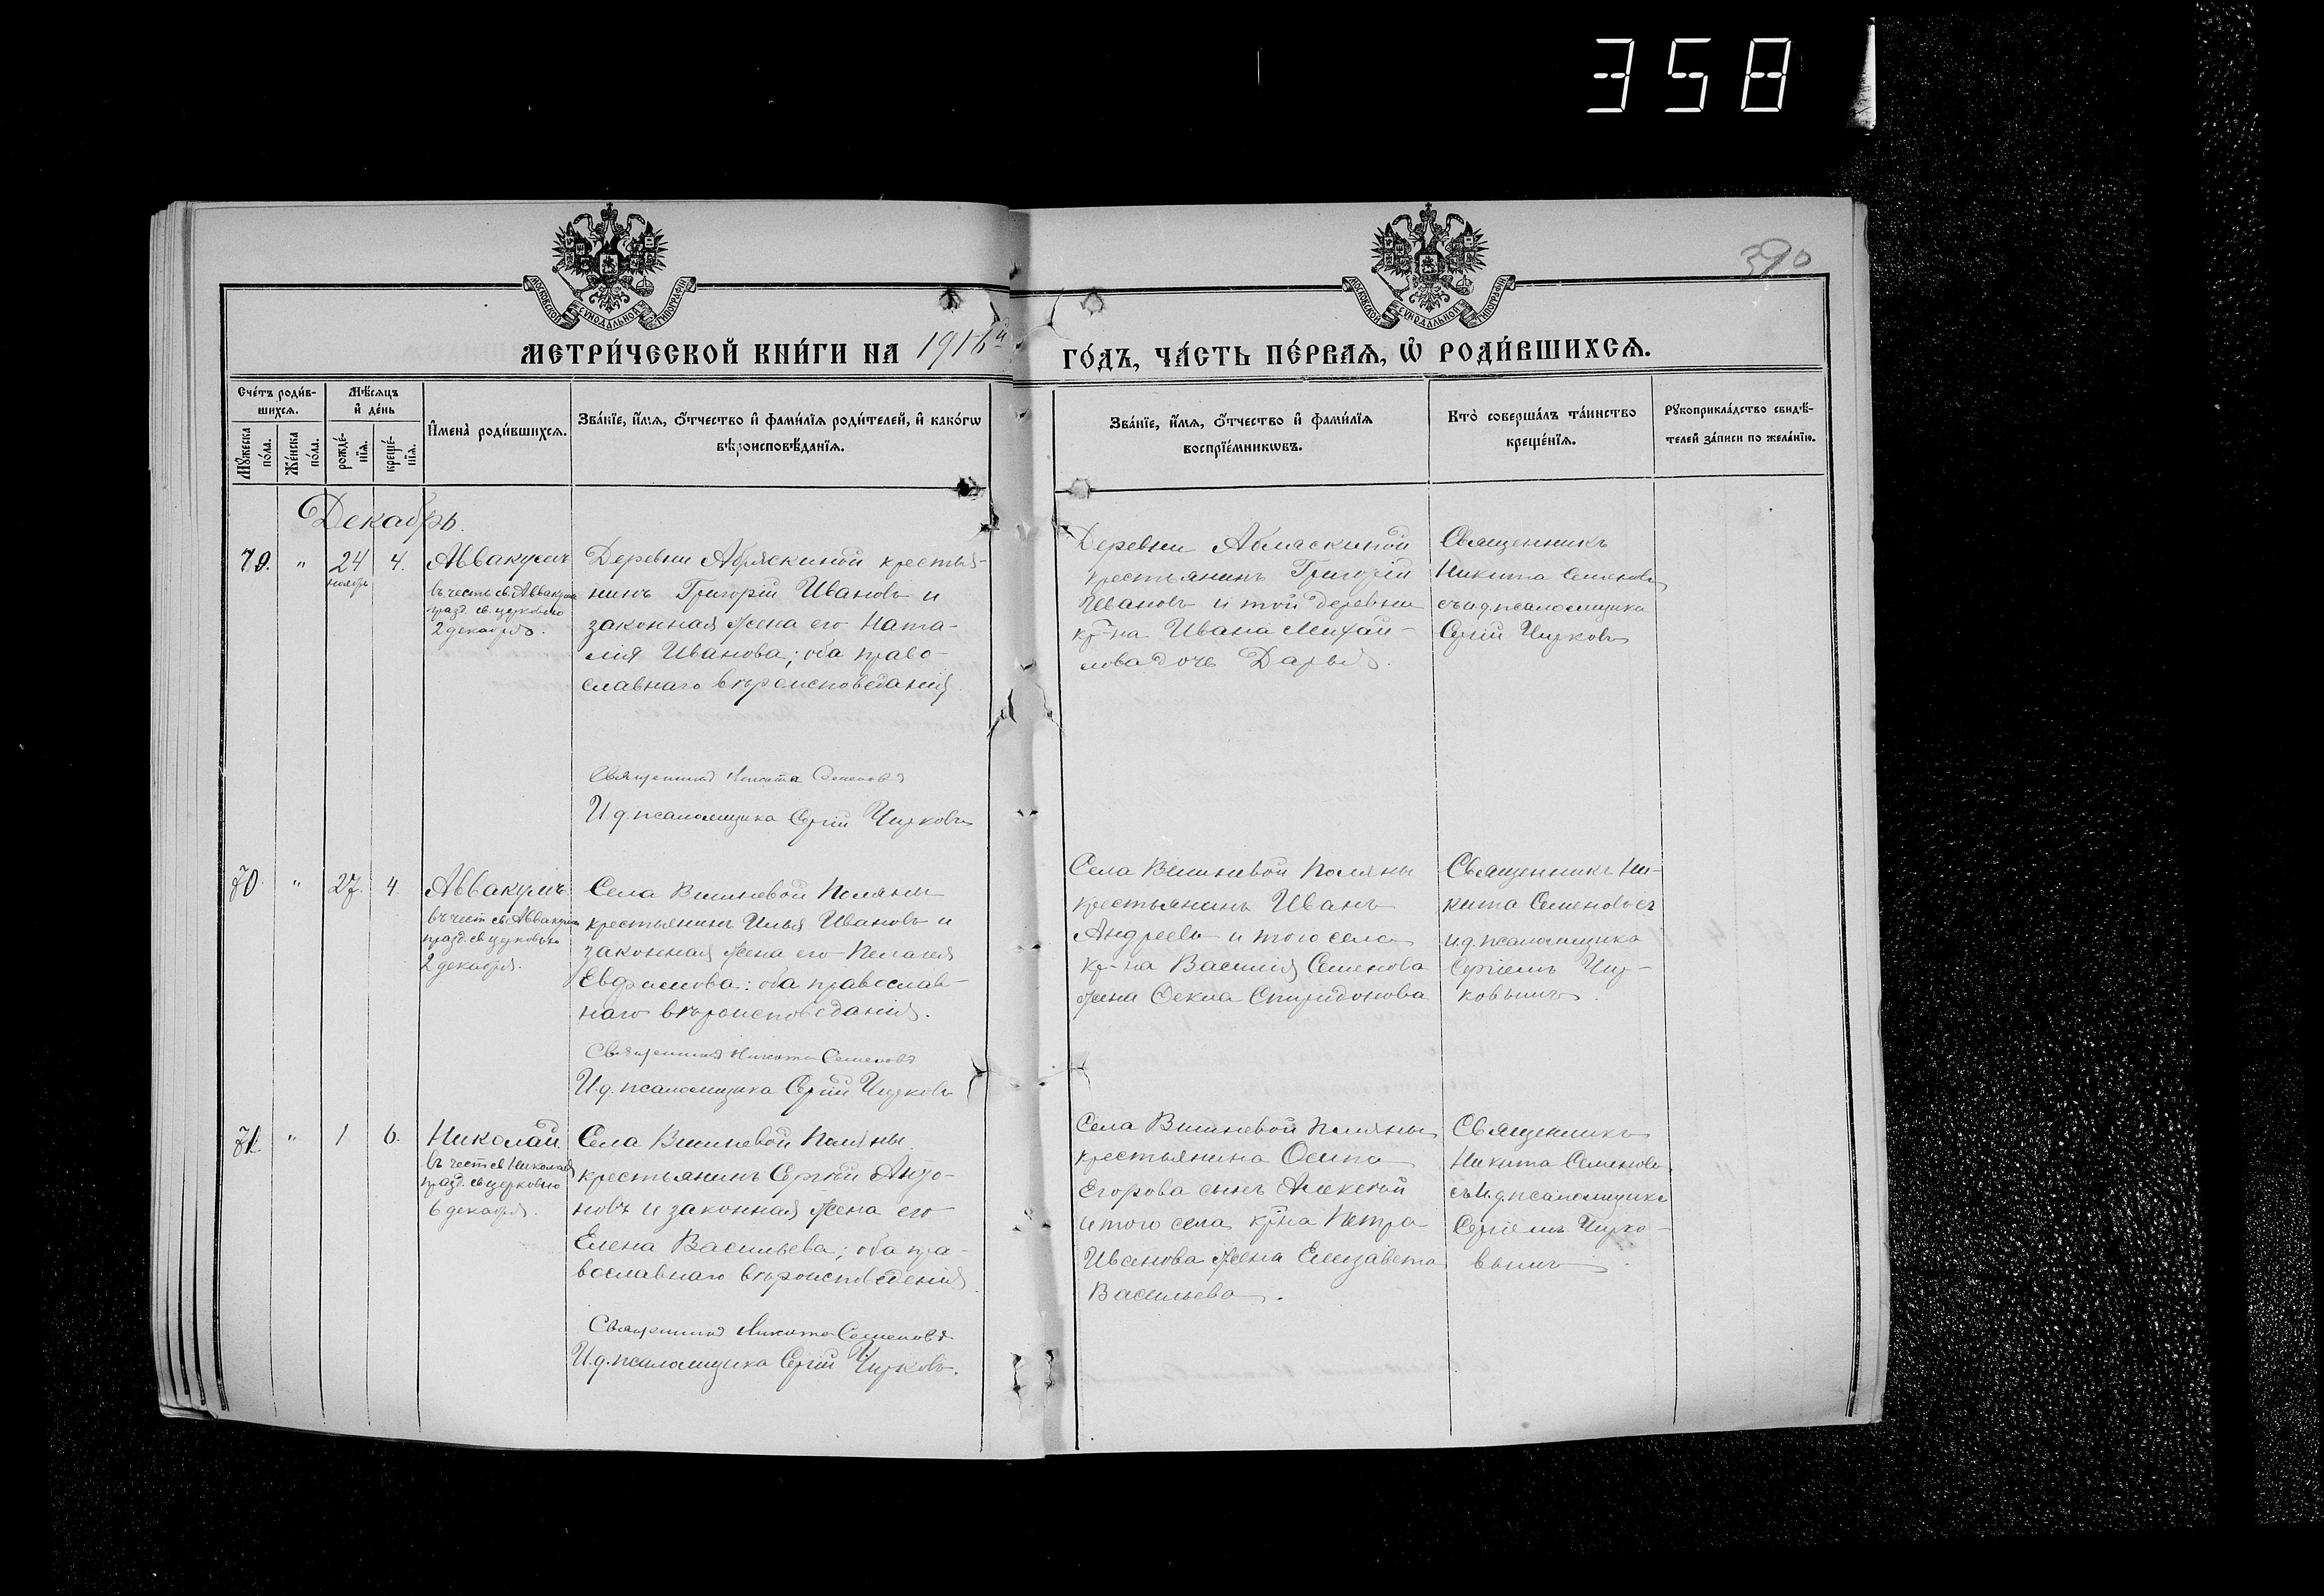 358
390
МОСКОВСКОЙ СѴНОДАЛЬНОЙ ТИПОГРАФІИ
МОСКОВСКОЙ СѴНОДАЛЬНОЙ ТИПОГРАФІИ
МЕТРИ́ЧЕСКОЙ КНИ́ГИ НА 1916й
ГО́ДЪ, ЧА́СТЬ ПЕ́РВАѦ, Ѡ҆ РОДИ́ВШИХСѦ.
Сче́тъ роди́в-
шихсѧ.
Мѣ́сѧцъ
и҆ де́нь
Мꙋ́жеска
по́ла.
Же́нска
по́ла.
рожде́-
нїѧ.
креще́-
нїѧ.
И҆мена̀ роди́вшихсѧ.
Зва́нїе, и҆́мѧ, ѻ҆́тчество и҆ фами́лїѧ роди́телей, и҆ како́гѡ
вѣроисповѣ́данїѧ.
Зва́нїе, и҆́мѧ, ѻ҆́тчество и҆ фами́лїѧ
воспрїе́мникѡвъ.
Кто̀ соверша́лъ та́инство
креще́нїѧ.
Рꙋкоприкла́дство свидѣ́-
телей за́писи по жела́нїю.
Декабрь.
70. " 24 4. Аввакумъ
ноябр
въ честь св. Аввакума
празд. св. церковью
2 декабря.
Деревни Абряскиной крестья-
нинъ Григорій Ивановъ и
законная жена его Ната-
лія Иванова; оба право-
славнаго вѣроисповѣданія.
Священникъ Никита Семеновъ
И.д. псаломщика Сергій Чирковъ
Деревни Абляскиной
крестьянинъ Григорій
Ивановъ и той деревни
кр-на Ивана Михаи-
лова дочь Дарья.
Священникъ
Никита Семеновъ
съ и.д. псаломщика
Сергій Чирковъ
70. " 27. 4. Аввакумъ
въ чест св. Аввакума
празд. св. церковью
2 декабря.
Села Вишневой Поляны
крестьянинъ Илья Ивановъ и
законная жена его Пелагея
Ефрамова: оба православ-
наго вѣроисповѣданія.
Священникъ Никита Семеновъ
И.д. псаломщика Сергій Чирковъ
Села Вишневой Поляны
крестьянинъ Иванъ
Андреевъ и того села
кр-на Василія Семенова
жена Ѳекла Спиридонова
Священникъ Ни-
кита Семеновъ съ
и.д. псаломщика
Сергіемъ Чир-
ковымъ.
71. " 1 6. Николай.
въ чест св Николая
празд. св церковью
6 декабря.
Села Вишневой Поляны
крестьянинъ Сергѣй Анто-
новъ и законная жена его
Елена Васильева; оба пра-
вославнаго вѣроисповеденія.
Священникъ Никита Семеновъ
И.д. псаломщика Сергій Чирковъ.
Села Вишневой Поляны
крестьянина Осипа
Егорова сынъ Алексѣй
и того села кр-на Петра
Иванова жена Елизавета
Васильева.
Священникъ
Никита Семеновъ
съ И.д. псаломщика
Сергіемъ Чирко-
вымъ.